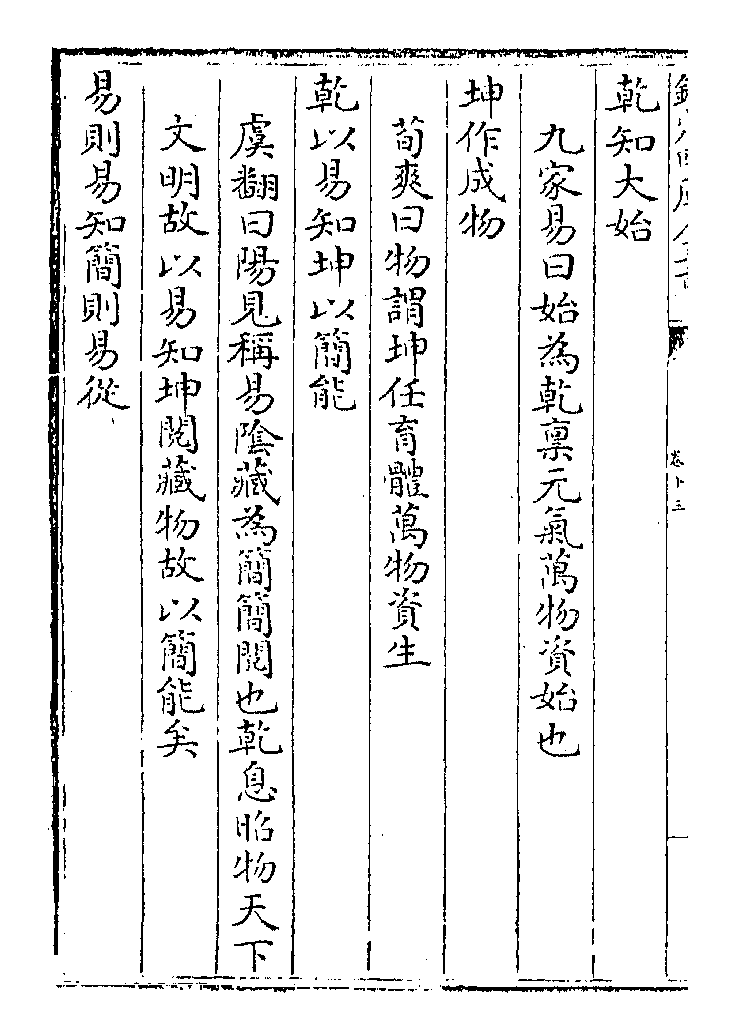 欽定四庫全書
卷十三
乾知大始
九家易曰始為乾稟元氣萬物資始也
坤作成物
荀爽曰物謂坤任育體萬物資生
乾以易知坤以簡能
虞翻曰陽見稱易隂藏為簡簡閱也乾息昭物天下
文明故以易知坤閱藏物故以簡能矣
易則易知簡則易從